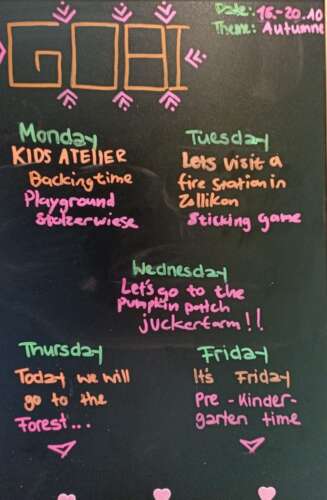 GOBI
Date: 16.-20.10
Theme: Autumne
Monday
KIDS ATELIER
Backingtime
Playground
Stolzerwiese
Tuesday
Lets visit a
fire Station in
Zollikon
Sticking game
Wednesday
Let's go to the
pumpkin patch
juckerfarm!!
Thursday
Today we will
go to the
Forest...
Friday
It's Friday
Pre-Kinder-
garten time